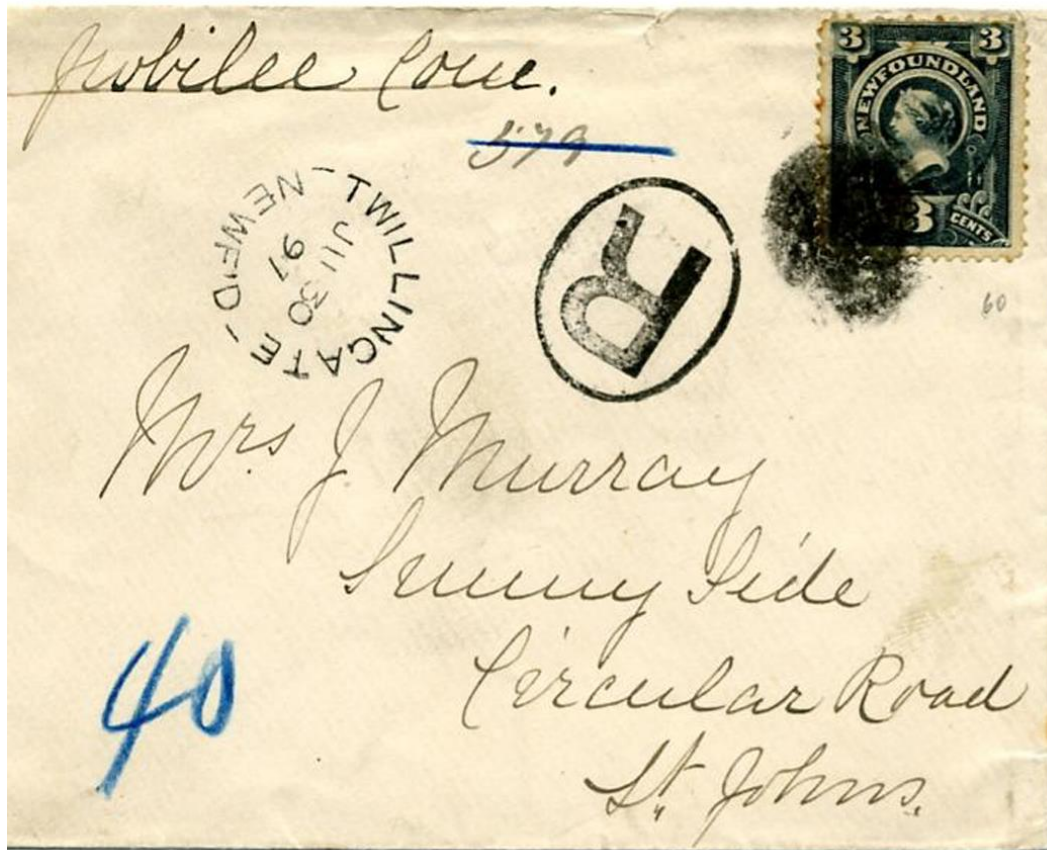 Jubilee Cove.
579
3 3
NEWFOUNDLAND
3 CENTS
60
TWILLINGATE - NEWF'D -
JU 30
97
R
Mrs J. Murray
Sunny Side
Circular Road
St. Johns.
40